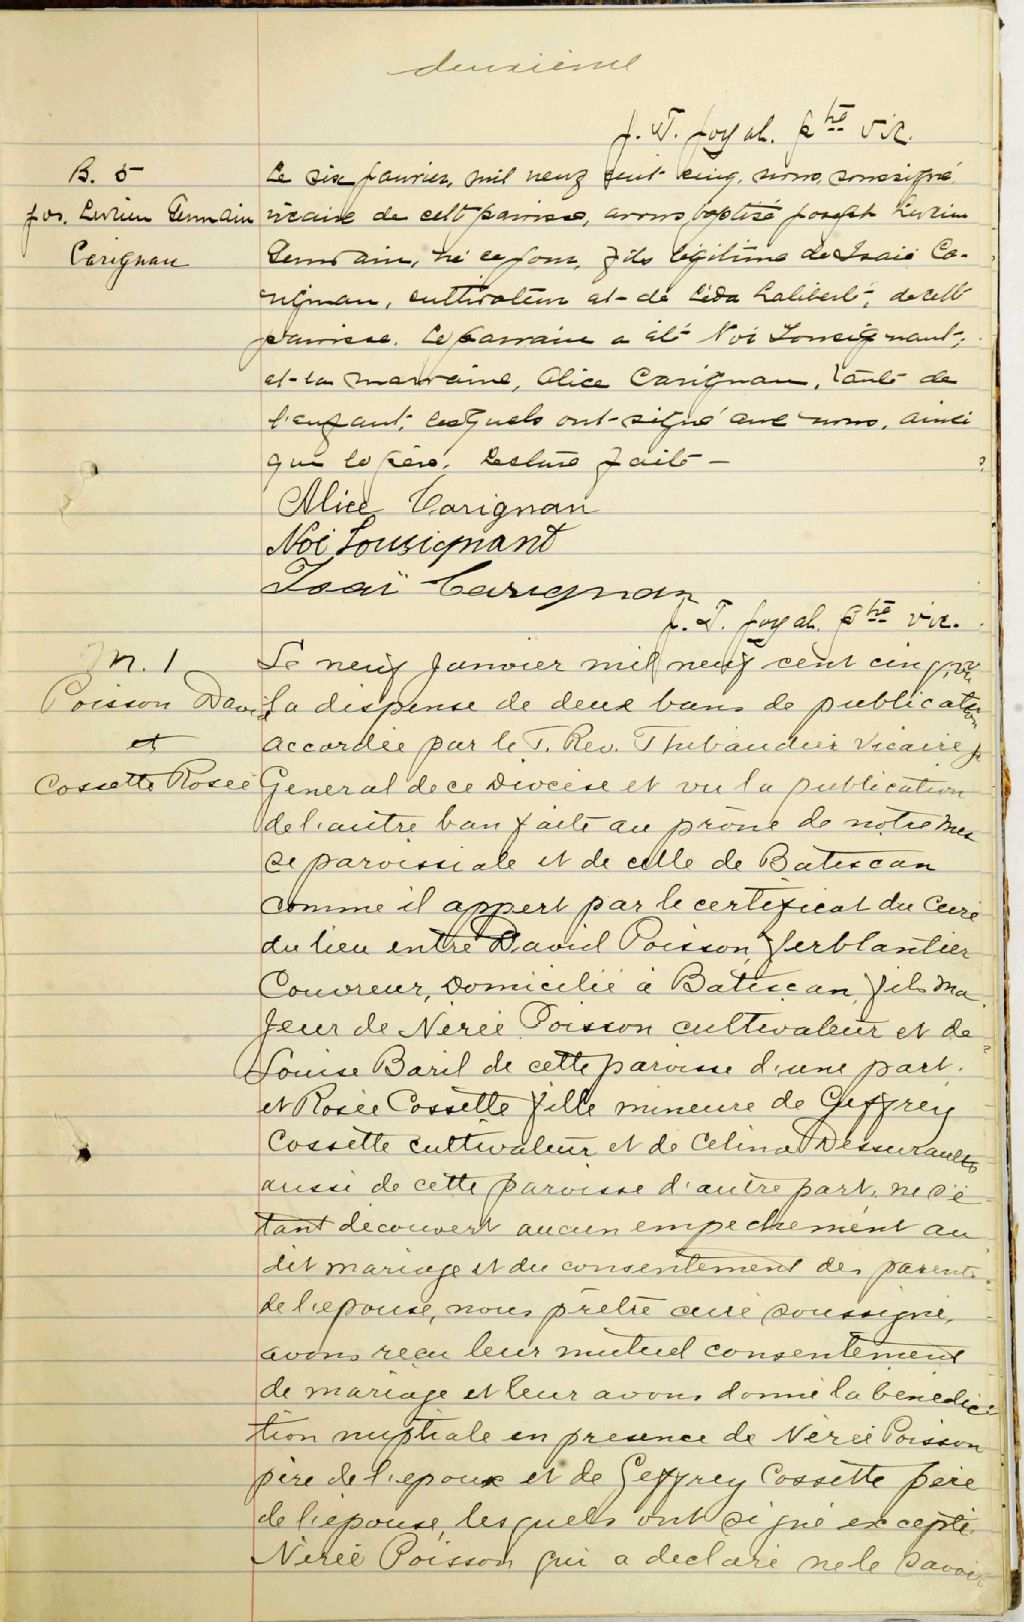 deuxième
J. T. Joyal. Ptre vic.
B. 5
Jos. Lucien Germain
Carignan
Le six janvier, mil neuf cent cinq, nous, soussigné
vicaire de cett paroisse, avons baptisé Joseph Lucien
Germain, né ce jour, fils légitime de Isaïe Ca-
rignan, cultivateur et de Léda Laliberté, de cett
paroisse. Le parrain a été Noé Tousignant,
et la marraine, Alice Carignan, tante de
l'enfant, lesquels ont signé avec nous, ainsi
que le père. Lecture faite —
Alice Carignan
Noé Tousignant
Isaï Carignan
J. T. Joyal. Ptre vic.
M. 1
Poisson David
et
Cossette Rosée
Le neuf Janvier mil neuf cent cinq, vu
la dispense de deux bans de publication
accordée par le T. Rev. Thibaudier Vicaire
General de ce Diocèse et vu la publication
de l'autre ban faite au prône de notre mes
se paroissiale et de celle de Batiscan
comme il appert par le certificat du Curé
du lieu entre David Poisson, ferblantier
Couvreur, Domicilié à Batiscan, fils ma
jeur de Nérée Poisson cultivateur et de
Louise Baril de cette paroisse d'une part.
et Rosée Cossette fille mineure de Geffrey
Cossette cultivateur et de Celina Dessureault
aussi de cette paroisse d'autre part, ne s'é
tant découvert aucun empechement au
dit mariage et du consentement des parents
de l'epouse, nous prêtre curé soussigné,
avons reçu leur mutuel consentement
de mariage et leur avons donné la bénédic
tion nuptiale en presence de Nérée Poisson
père de l'epoux et de Geffrey Cossette père
de l'epouse, lesquels ont signé excepté
Nerée Poisson qui a déclaré ne le savoir